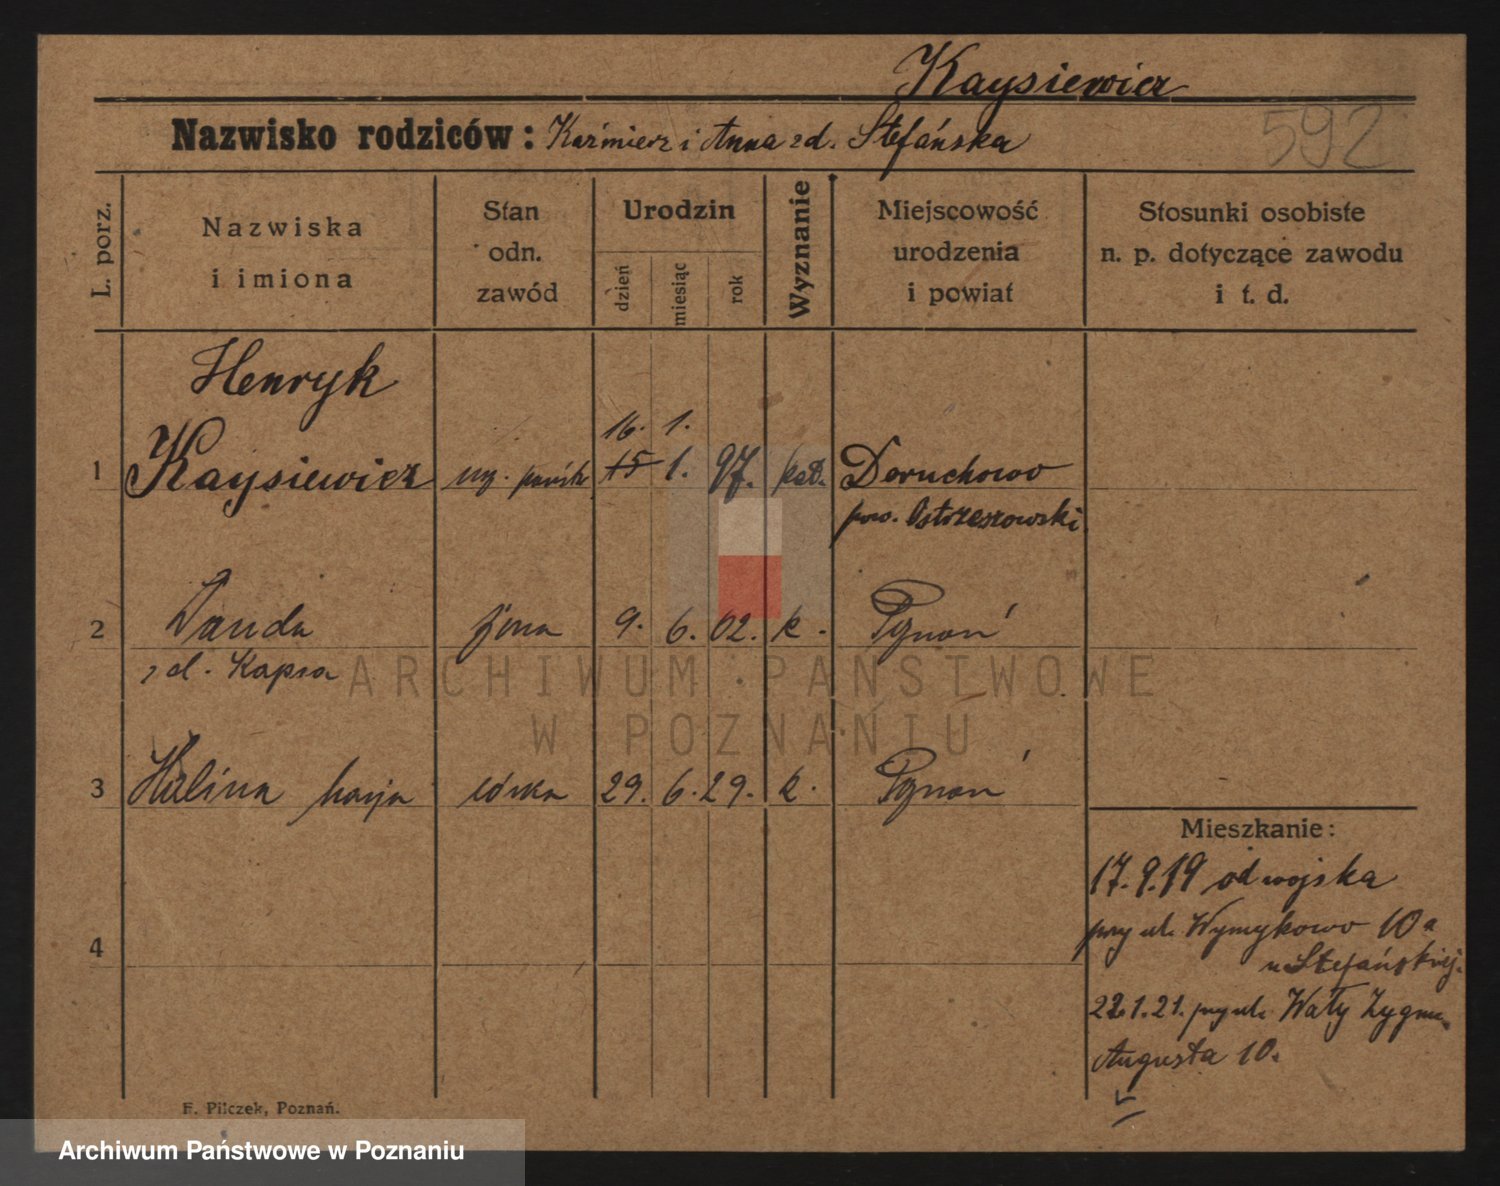 Kaysiewicz
Nazwisko rodziców: Kaźmierz i Anna z d. Stefańska
592
L. porz.
Nazwiska
i imiona
Stan
odn.
zawód
Urodzin
dzień
miesiąc
rok
Wyznanie
Miejscowość
urodzenia
i powiat
Stosunki osobiste
n. p. dotyczące zawodu
i t. d.
Henryk
16. 1.
1 Kaysiewicz 15 1. 97. kat. Doruchowo
pow. Ostrzeszowski
2 Wanda żona 9. 6. 02. k. Poznań
z d. Kapsa
3 Halina córka 29. 6. 29. k. Poznań
4
Mieszkanie:
17.9.19 od wojska
przy ul. Wymykowo 10a
u Stefańskiej.
22.1.21. przy ul. Wały Zygm.
Augusta 10.
F. Pilczek, Poznań.
ARCHIWUM PAŃSTWOWE
W POZNANIU
Archiwum Państwowe w Poznaniu